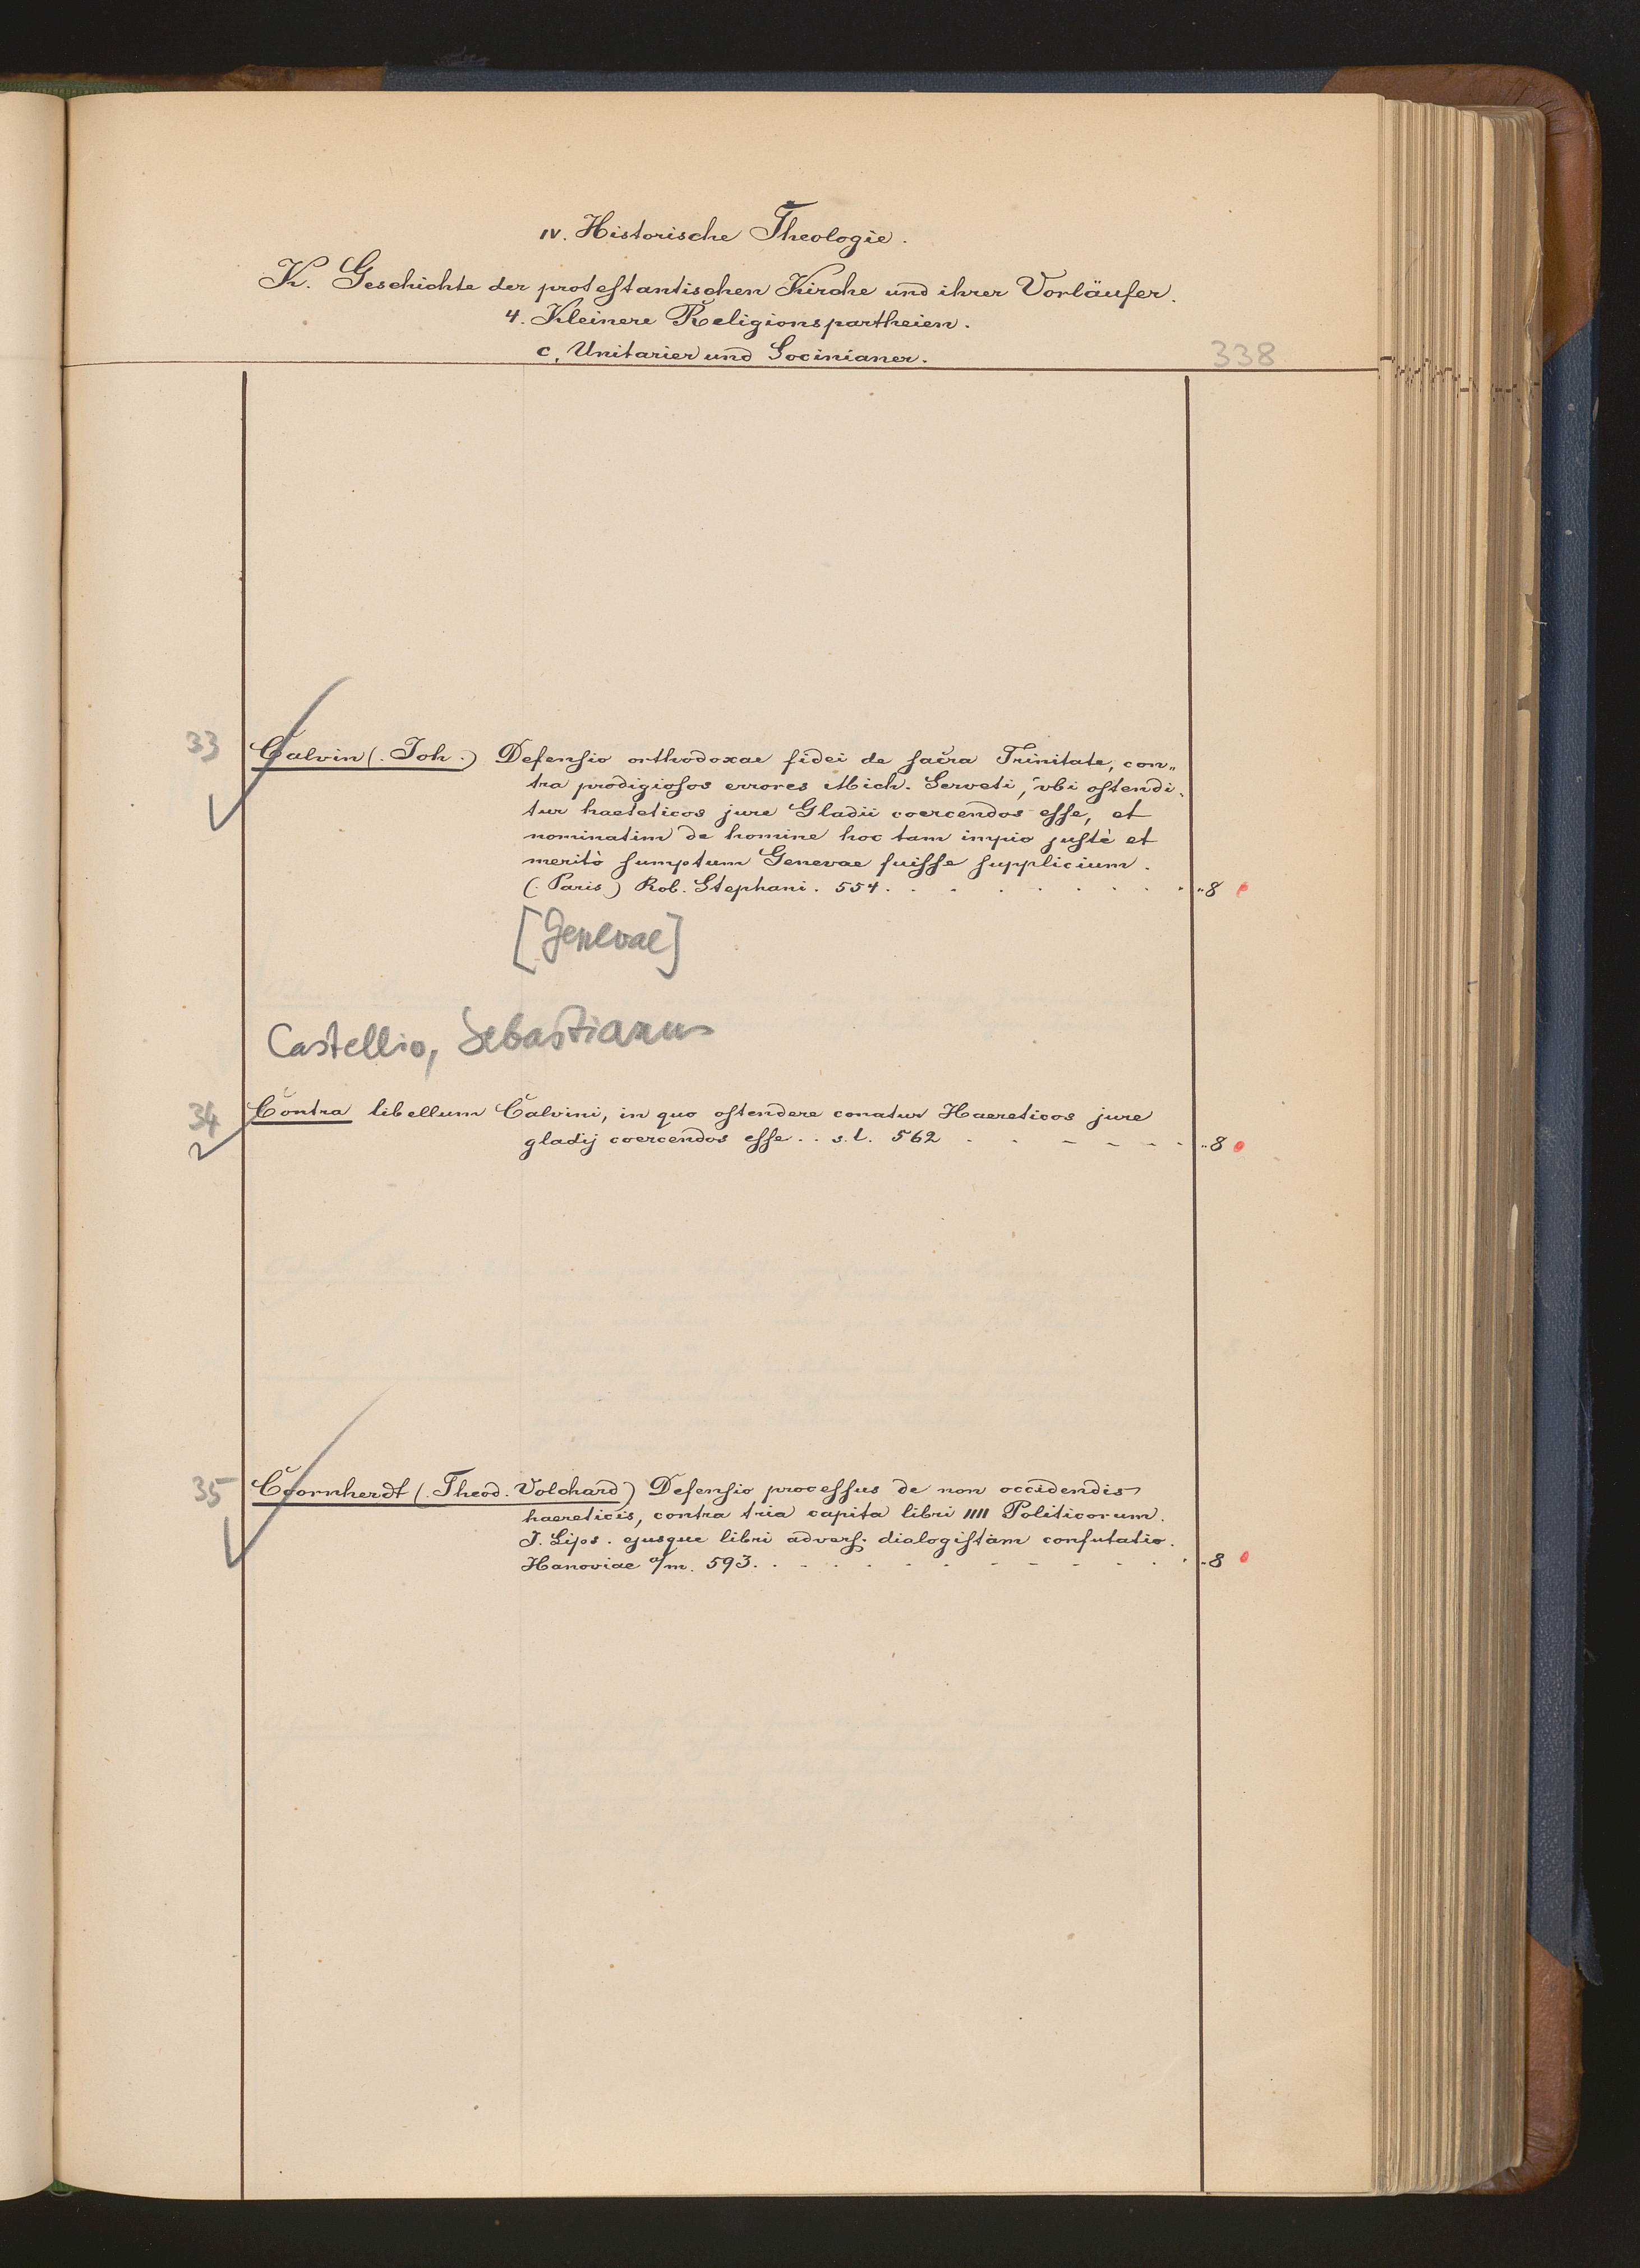 IV. Historische Theologie.
K. Geschichte der protestantischen Kirche und ihrer Vorläufer.
4. Kleinere Religionspartheien.
c, Unitarier und Socinianer.
338
33
Calvin (. Joh.) Defensio orthodoxae fidei de sacra Trinitate, con„
tra prodigiosos errores Mich. Serveti, vbi ostendi„
tur haeteticos jure Gladii coercendos esse, et
nominatim de homine hoc tam impio justè et
meritò sumptum Genevae fuisse supplicium.
(. Paris) Rob. Stephani. 554. 8
[Genevae]
Castellio, Sebastianus
34
Contra libellum Calvini, in quo ostendere conatur Haereticos jure
gladij coercendos esse.. s.l. 562 8
35
Coornherdt (. Theod. Volchard) Defensio processus de non occidendis
haereticis, contra tria capita libri IIII Politicorum.
J. Lips. ejusque libri advers. dialogistam confutatio.
Hanoviae a/m. 593. 8